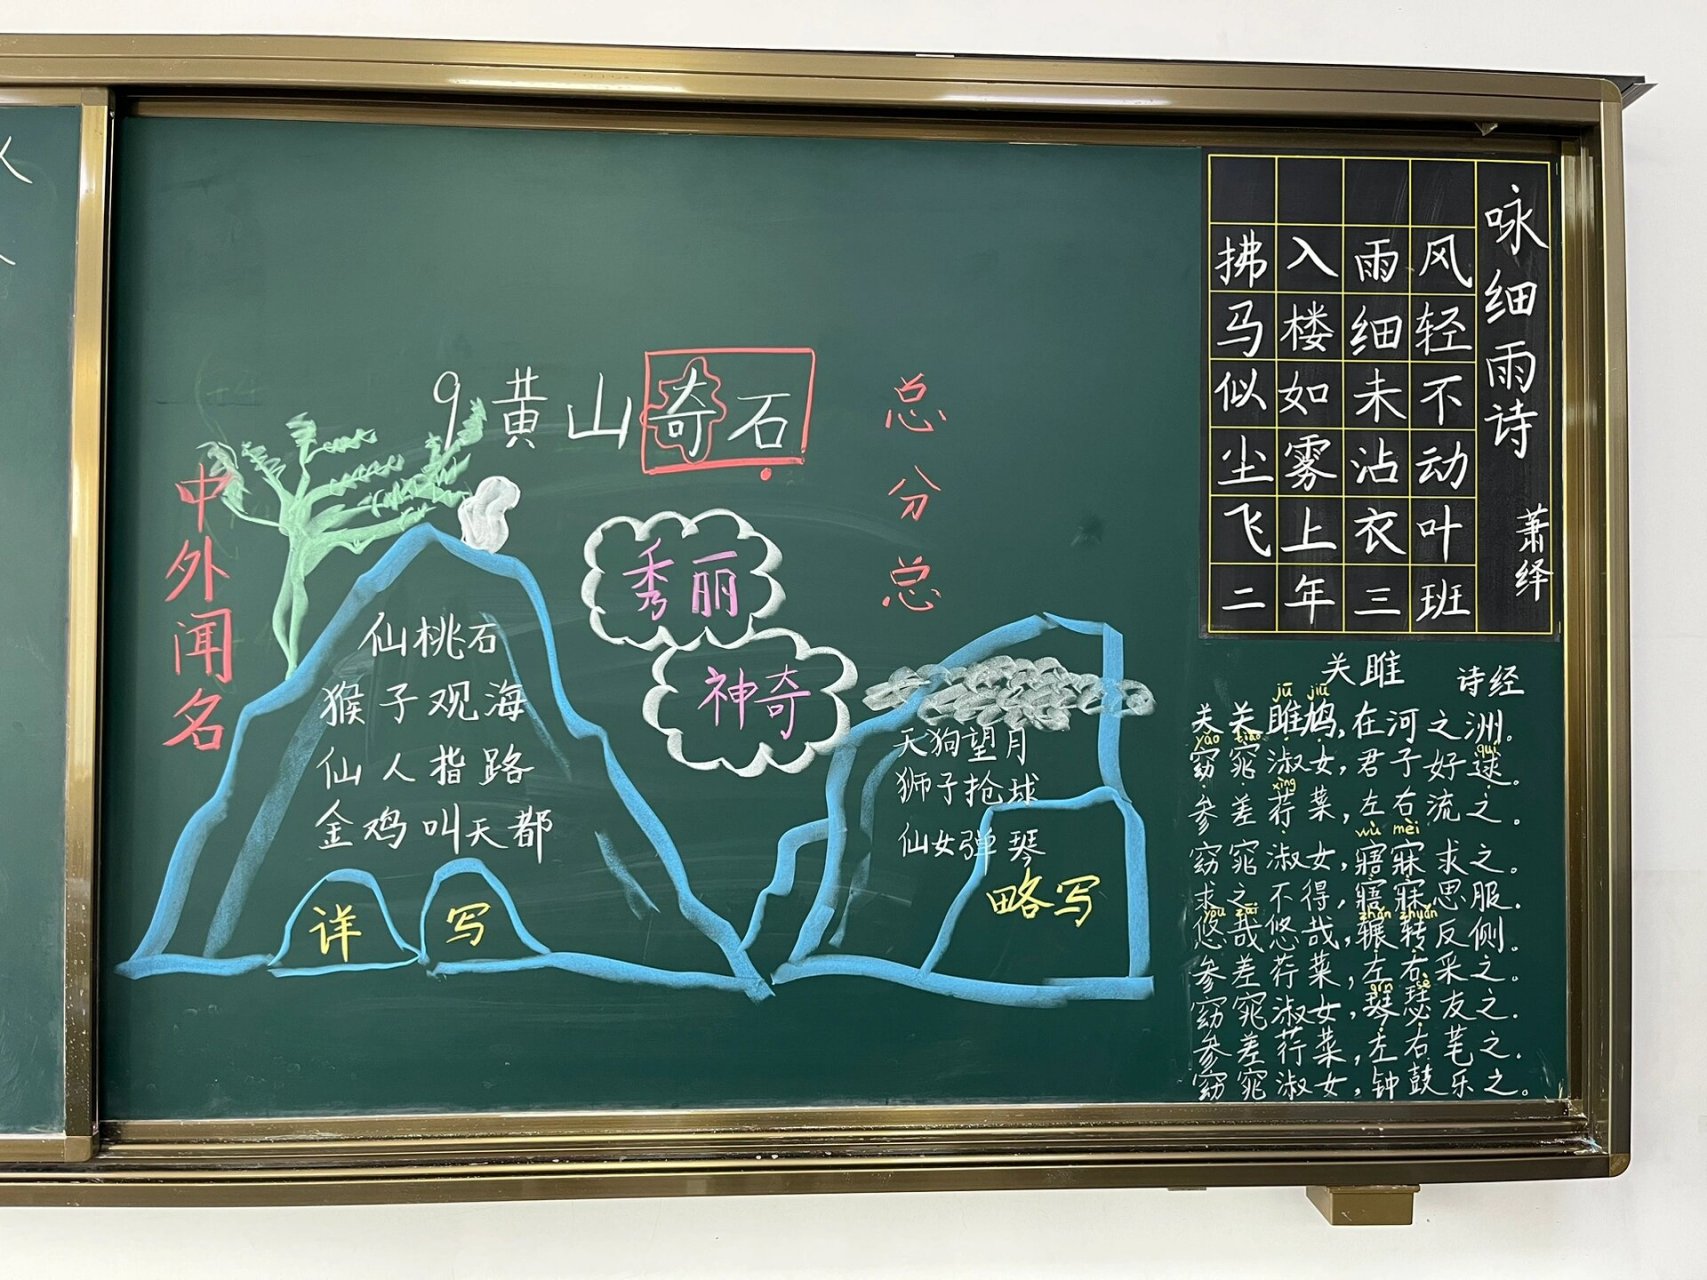 9 黄山奇石
中外闻名
总分总
秀丽
神奇
仙桃石
猴子观海
仙人指路
金鸡叫天都
详写
天狗望月
狮子抢球
仙女弹琴
略写
咏细雨诗
萧绎
风轻不动叶班
雨细未沾衣三
入楼如雾上年
拂马似尘飞二
关雎 诗经
jū jiū
关关雎鸠,在河之洲。
yǎo tiǎo qiú
窈窕淑女,君子好逑。
xìng
参差荇菜,左右流之。
wù mèi
窈窕淑女,寤寐求之。
求之不得,寤寐思服.
yōu zāi zhǎn zhuǎn
悠哉悠哉,辗转反侧。
参差荇菜,左右采之。
qín sè
窈窕淑女,琴瑟友之.
参差荇菜,左右芼之.
窈窕淑女,钟鼓乐之。